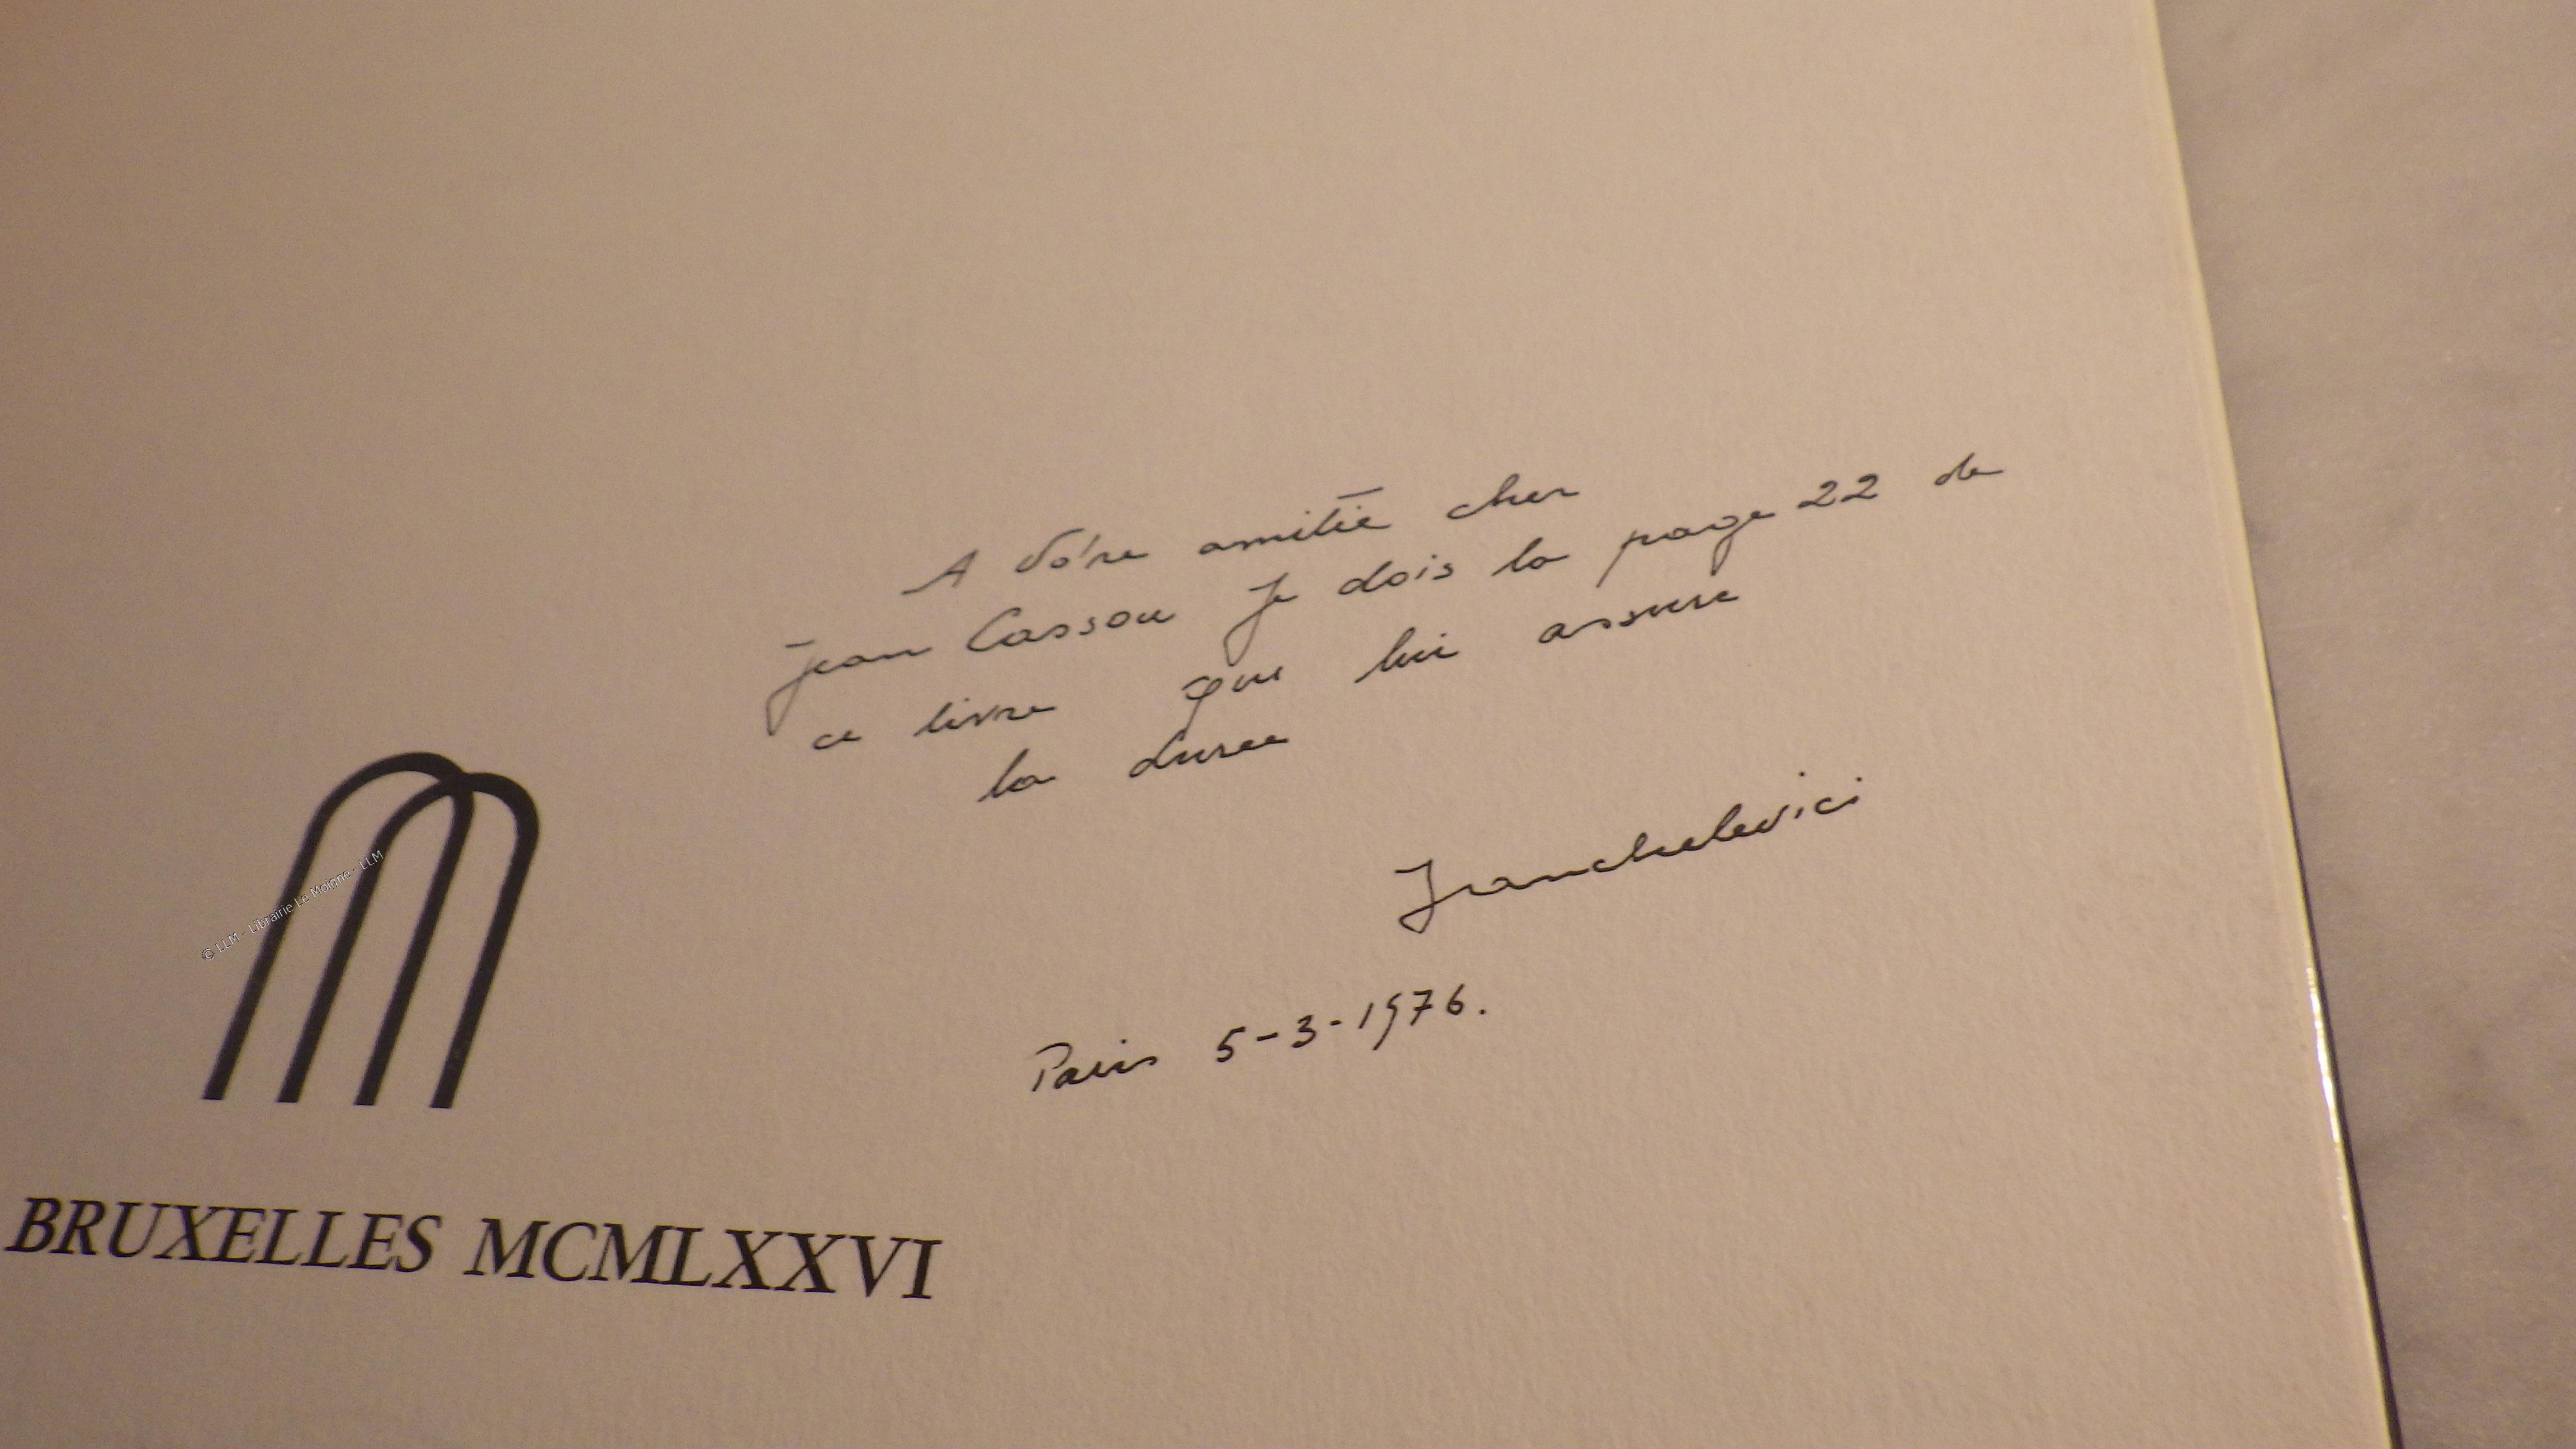 A votre amitié cher
Jean Cassou Je dois la page 22 de
ce livre qui lui assure
la durée
Ianchelevici
Paris 5-3-1976.
© LLM - Librairie Le Moigne - LLM
BRUXELLES MCMLXXVI